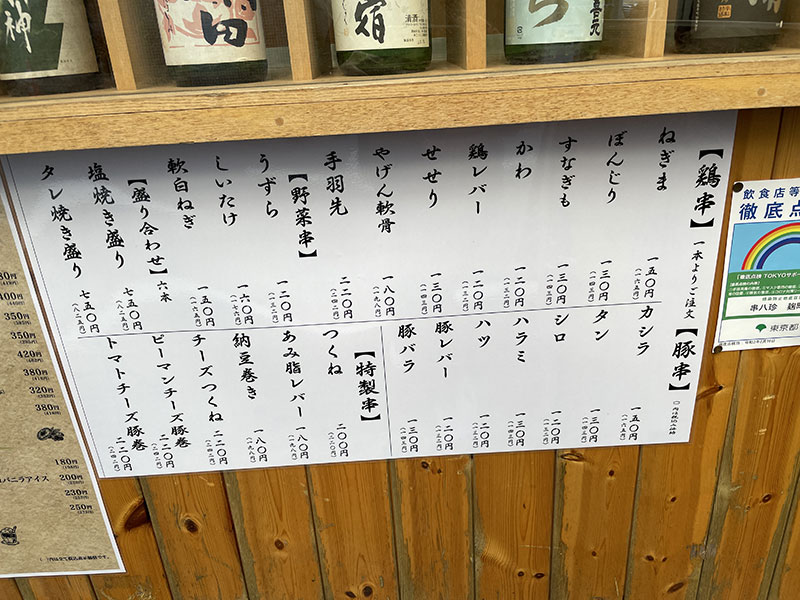 神
田
宿
【鶏串】一本よりご注文
ねぎま 一五〇円 (一六五円)
ぼんじり 一三〇円 (一四三円)
すなぎも 一三〇円 (一四三円)
かわ 一二〇円 (一三二円)
鶏レバー 一二〇円 (一三二円)
せせり 一三〇円 (一四三円)
やげん軟骨 一八〇円 (一九八円)
手羽先 二二〇円 (二四二円)
【野菜串】
うずら 一二〇円 (一三二円)
しいたけ 一六〇円
軟白ねぎ 一五〇円 (一六五円)
【盛り合わせ】六本
塩焼き盛り 七五〇円 (八二五円)
タレ焼き盛り 七五〇円 (八二五円)
【豚串】
カシラ 一五〇円 (一六五円)
タン 一三〇円 (一四三円)
シロ 一二〇円 (一三二円)
ハラミ 一三〇円 (一四三円)
ハツ 一二〇円 (一三二円)
豚レバー 一二〇円
豚バラ 一三〇円 (一四三円)
【特製串】
つくね 二〇〇円 (二二〇円)
あみ脂レバー 一八〇円 (一九八円)
納豆巻き 一八〇円 (一九八円)
チーズつくね 二二〇円 (二四二円)
ピーマンチーズ豚巻 二二〇円 (二四二円)
トマトチーズ豚巻 二二〇円 (二四二円)
飲食店等
徹底点
串八珍
東京都
400円
350円
350円
380円
420円
320円
380円
180円
バニラアイス 200円
230円
250円